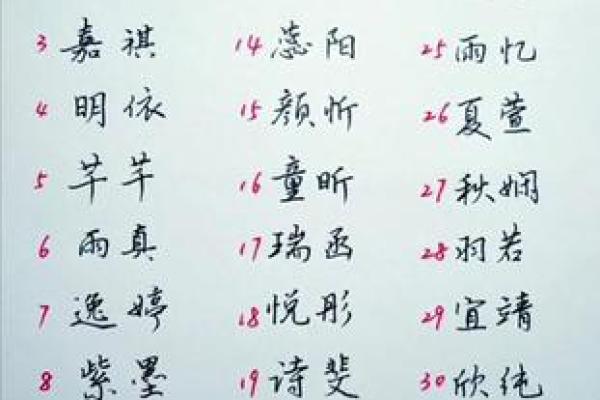 3 嘉祺 14 蕊阳 25 雨忆
4 明依 15 颜忻 26 夏萱
5 芊芊 16 童昕 27 秋娴
6 雨真 17 瑞函 28 羽若
7 逸婷 18 悦彤 29 宜靖
8 紫墨 19 诗斐 30 欣纯